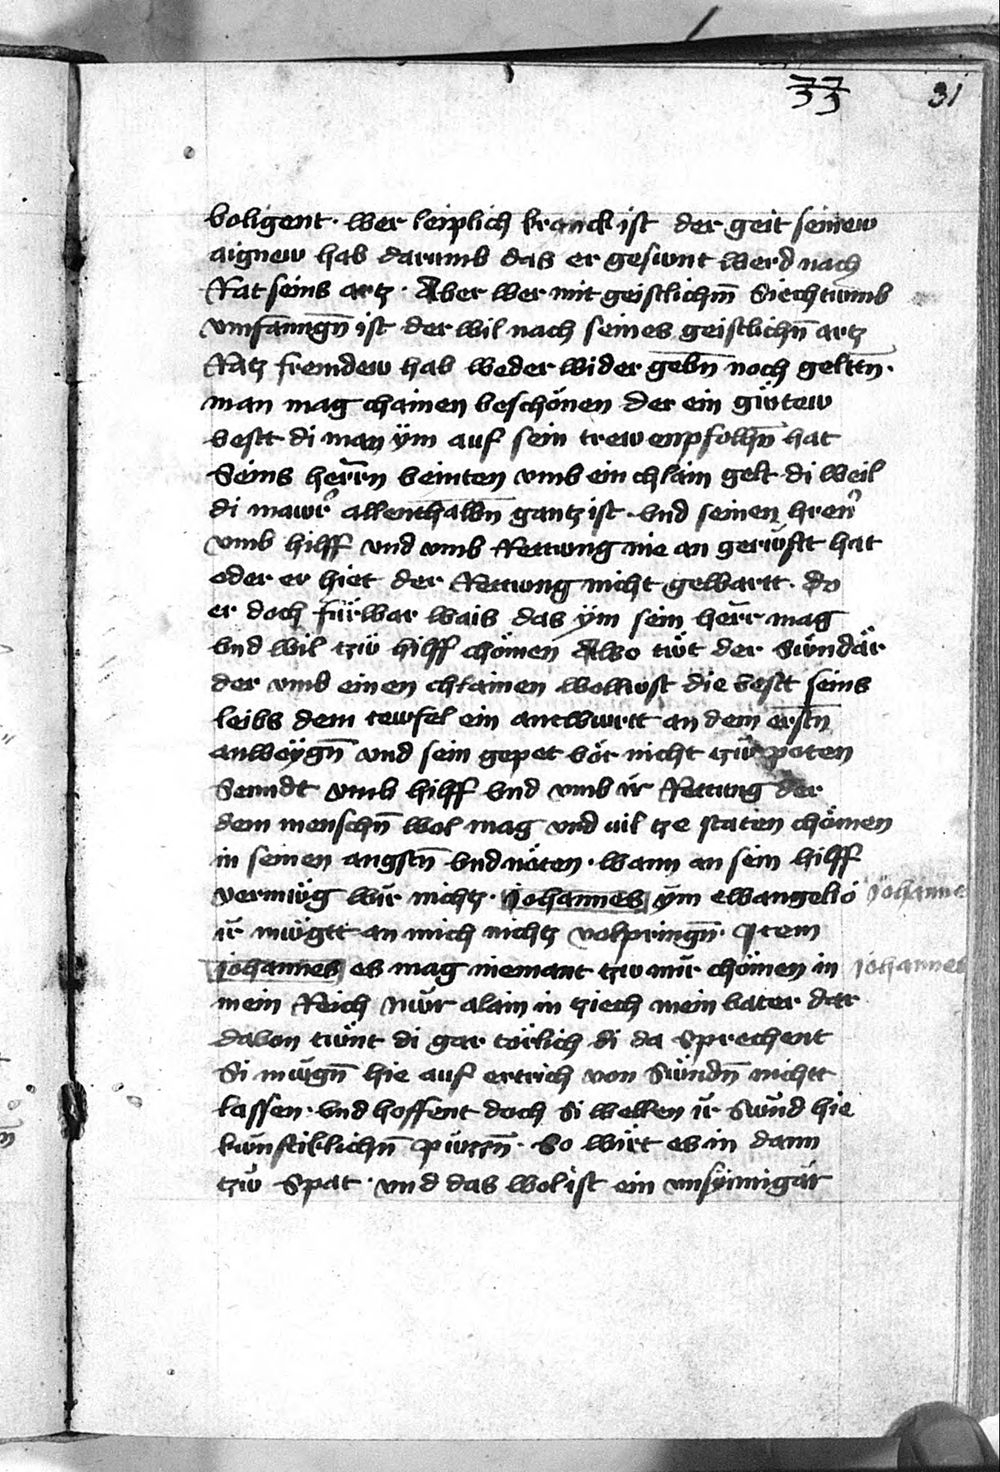 33 31
voligent · wer leiplich kranck ist der geit seinew
aignew hab darumb das er gesunt werd nach
Rat seins artz · Aber wer mit geistlichm̄ Siechtumb
vmfanngn̄ ist der wil nach seines geistlichn̄ artz
Ratz fremdew hab weder wider gebn̄ noch geltn̄ ·
man mag chainen beschönen der ein gutew
vestt di man ÿm auf sein trew enpfolhn̄ hat
Seins herrn̄ veinten vmb ein chlain gelt di weil
di mawr allenthalbn̄ gantz ist · vnd seinen hren
vmb hilff vnd vmb Rettung nie an gerüfft hat
oder er hiet der Rettung nicht gewartt · Do
er doch fürwar wais das ÿm sein herr mag
vnd wil tzü hilff chömen Also tüt der Sündär
der vmb einen chlainen wollust die vestt seins
leibs dem tewfel ein antwurtt an dem erstn̄
anweÿgn̄ vnd sein gepet vör nicht tzü poten
Senndt vmb hilff vnd vmb ir Rettung der
dem menschn̄ wol mag vnd uil tze staten chömen
in seinen angstn̄ vnd nöten · wann an sein hilff
vermüg wir nichtz · johannes ÿm ewangelio johanne
ir mügtt an mich nichtz volpringn̄ · Item
johannes es mag niemant tzw mir chömen in johannes
mein Reich Nür alain in tziech mein vater dar
davon tünt di gar törlich di da Sprechent
Si mügn̄ hie auf ertrich von Sündn̄ nichtt
lassen · vnd hoffent doch Si wellen ir Sünd hie
künftiklichn̄ püezzn̄ · So wirt es in dann
tzü Spat · vnd das wol ist ein vnsÿnnigär